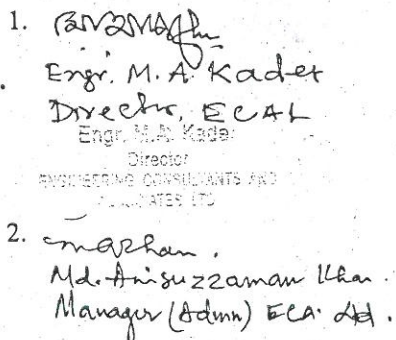 1.
Engr. M. A. Kader
Director, ECAL
Engr. M.A. Kader
Director
ENGINEERING CONSULTANTS AND
ASSOCIATES LTD
2.
Md. Anisuzzaman Khan.
Manager (Admn) ECA Ltd.